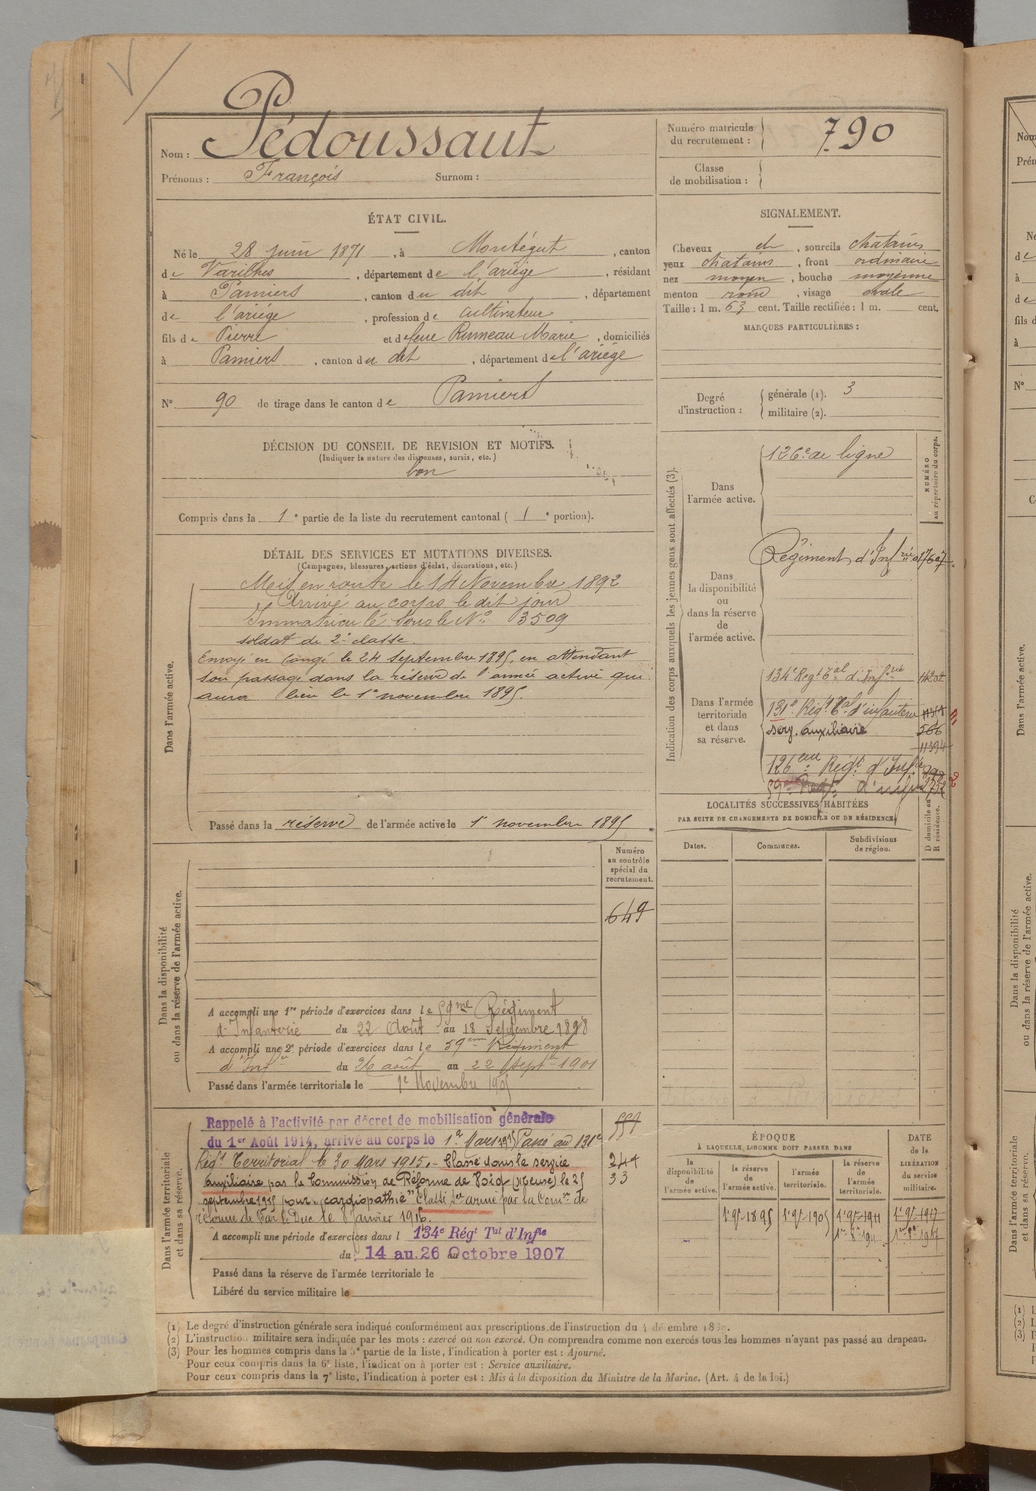 Nom : Pédoussaut
Prénoms : François Surnom :
Numéro matricule du recrutement : 790
Classe de mobilisation :
ÉTAT CIVIL.
Né le 28 juin 1871, à Montégut, canton
de Varilhes, département de l'ariège, résidant
à Pamiers, canton du dit, département
de l'ariège, profession de cultivateur
fils de Pierre et de feue Rumeau Marie, domiciliés
à Pamiers, canton du dit, département de l'ariège
N° 90 de tirage dans le canton de Pamiers
SIGNALEMENT.
Cheveux ch, sourcils chatains
yeux chatains, front ordinaire
nez moyen, bouche moyenne
menton rond, visage ovale
Taille : 1 m. 63 cent. Taille rectifiée : 1 m. cent.
MARQUES PARTICULIÈRES :
Degré d'instruction : générale (1). 3
militaire (2).
DÉCISION DU CONSEIL DE REVISION ET MOTIFS.
(Indiquer la nature des dispenses, sursis, etc.)
bon
Compris dans la 1e partie de la liste du recrutement cantonal ( 1e portion).
DÉTAIL DES SERVICES ET MUTATIONS DIVERSES.
(Campagnes, blessures, actions d'éclat, décorations, etc.)
Dans l'armée active.
Mis en route le 14 Novembre 1892
Arrivé au corps le dit jour
Immatriculé sous le N° 3509
soldat de 2e classe.
Envoyé en congé le 24 septembre 1895, en attendant
son passage dans la réserve de l'armée active qui
aura lieu le 1er novembre 1895.
Passé dans la réserve de l'armée active le 1er novembre 1895.
Indication des corps auxquels les jeunes gens sont affectés (3).
NUMÉRO au répertoire du corps.
Dans l'armée active.
126e de ligne
Dans la disponibilité ou dans la réserve de l'armée active.
Régiment d'Infrie
Dans l'armée territoriale et dans sa réserve.
134e Regt Tal d'Infrie
131e Régt Tal d'infanterie
serv. auxiliaire 566
126eme Regt d'Infie
59e d'infie
LOCALITÉS SUCCESSIVES HABITÉES
PAR SUITE DE CHANGEMENTS DE DOMICILE OU DE RÉSIDENCE.
Dates. Communes. Subdivisions de région. D domicile ou R résidence.
Dans la disponibilité ou dans la réserve de l'armée active.
Numéro au contrôle spécial du recrutement.
649
A accompli une 1re période d'exercices dans le 59me Régiment
d'Infanterie du 22 Août au 18 Septembre 1898
A accompli une 2e période d'exercices dans le 59eme Régiment
d'Inf du 26 août au 22 septre 1901
Passé dans l'armée territoriale le 1er Novembre 1905
Dans l'armée territoriale et dans sa réserve.
Rappelé à l'activité par décret de mobilisation générale
du 1er Août 1914, arrivé au corps le 1er Mars 1915 Passé au 131e
Régt Territorial le 30 Mars 1915. Classé dans le service
auxiliaire par la Commission de Réforme de Void (Meuse) le 25
septembre 1915 pour "cardiopathie" Classé sce armé par la Comon de
réforme de Bar le Duc le 8 janvier 1916.
244
33
A accompli une période d'exercices dans l 134e Régt Tal d'Infie
du 14 au 26 Octobre 1907
Passé dans la réserve de l'armée territoriale le
Libéré du service militaire le
ÉPOQUE
À LAQUELLE L'HOMME DOIT PASSER DANS
la disponibilité de l'armée active. la réserve de l'armée active. l'armée territoriale. la réserve de l'armée territoriale.
DATE DE LA LIBÉRATION du service militaire.
1er 9bre 1895 1er 9bre 1905 1er 9bre 1911 1er 9bre 1917
(1) Le degré d'instruction générale sera indiqué conformément aux prescriptions de l'instruction du 4 décembre 1889.
(2) L'instruction militaire sera indiquée par les mots : exercé ou non exercé. On comprendra comme non exercés tous les hommes n'ayant pas passé au drapeau.
(3) Pour les hommes compris dans la 5e partie de la liste, l'indication à porter est : Ajourné.
Pour ceux compris dans la 6e liste, l'indication à porter est : Service auxiliaire.
Pour ceux compris dans la 7e liste, l'indication à porter est : Mis à la disposition du Ministre de la Marine. (Art. 4 de la loi.)